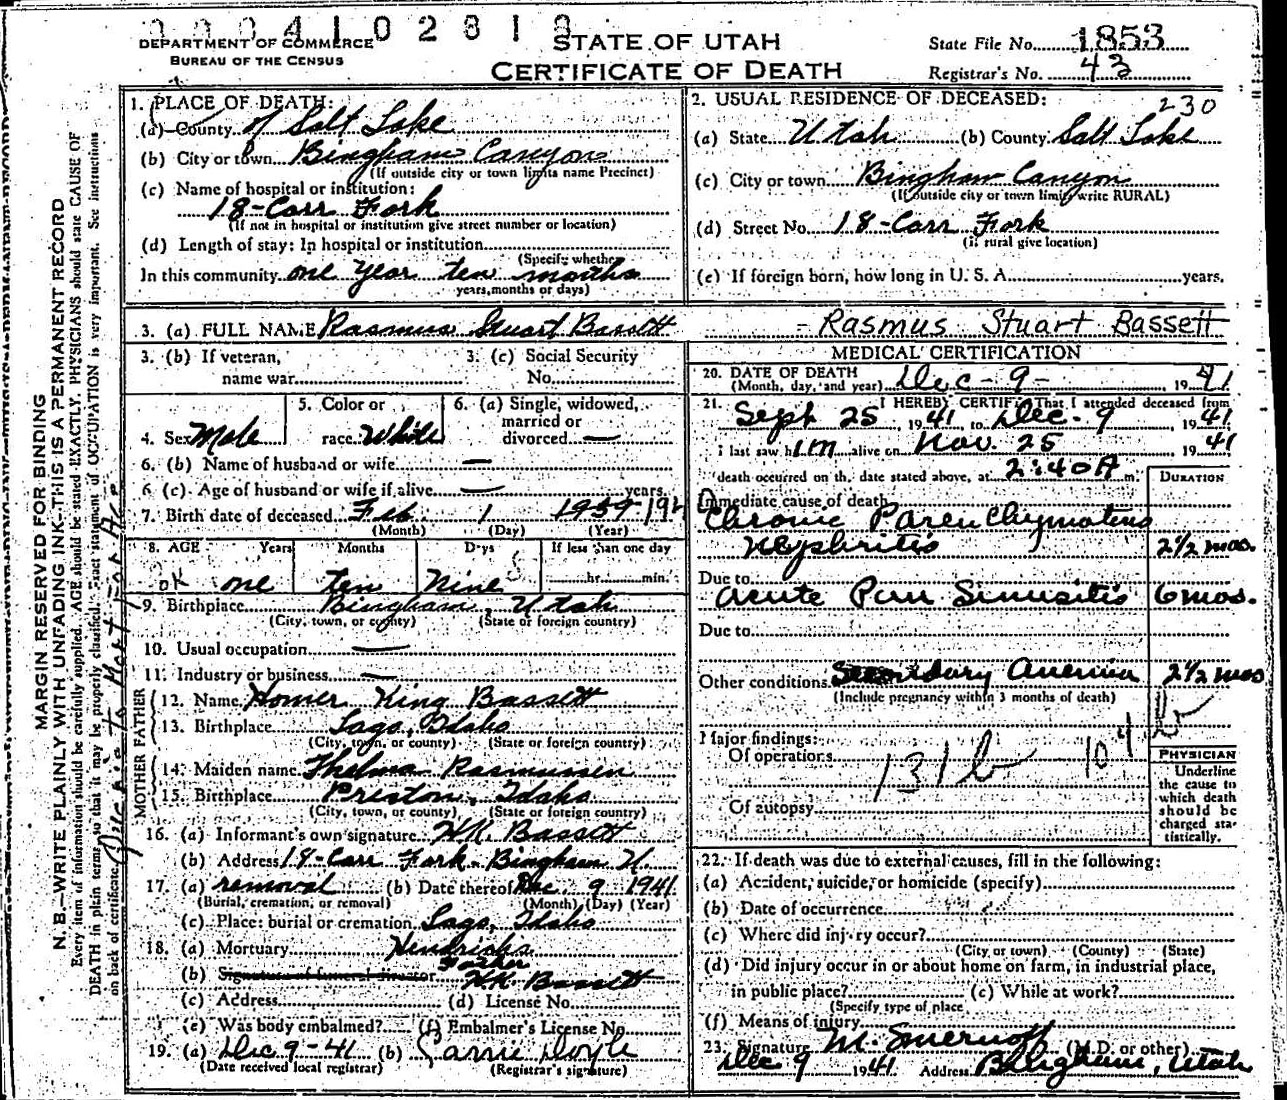 0004102818
DEPARTMENT OF COMMERCE
BUREAU OF THE CENSUS
STATE OF UTAH
CERTIFICATE OF DEATH
State File No. 1853
Registrar's No. 43
1. PLACE OF DEATH:
(a) County of Salt Lake
(b) City or town Bingham Canyon
(If outside city or town limits name Precinct)
(c) Name of hospital or institution:
18-Carr Fork
(If not in hospital or institution give street number or location)
(d) Length of stay: In hospital or institution
(Specify whether
In this community one year ten months
years, months or days)
2. USUAL RESIDENCE OF DECEASED:
230
(a) State Utah (b) County Salt Lake
(c) City or town Bingham Canyon
(If outside city or town limits write RURAL)
(d) Street No. 18-Carr Fork
(If rural give location)
(e) If foreign born, how long in U. S. A. years.
3. (a) FULL NAME Rasmus Stuart Bassett - Rasmus Stuart Bassett
3. (b) If veteran, name war
3. (c) Social Security No.
4. Sex Male
5. Color or race White
6. (a) Single, widowed, married or divorced —
6. (b) Name of husband or wife —
6 (c). Age of husband or wife if alive — years.
7. Birth date of deceased Feb. 1 1939
(Month) (Day) (Year)
8. AGE Years Months Days If less than one day
ok one ten Nine hr. min.
9. Birthplace Bingham, Utah
(City, town, or county) (State or foreign country)
10. Usual occupation —
11. Industry or business —
FATHER
12. Name Homer King Bassett
13. Birthplace Lago, Idaho
(City, town, or county) (State or foreign country)
MOTHER
14. Maiden name Thelma Rasmussen
15. Birthplace Preston, Idaho
(City, town, or county) (State or foreign country)
16. (a) Informant's own signature H.K. Bassett
(b) Address 18-Carr Fork- Bingham U.
17. (a) removal (b) Date thereof Dec 9 1941
(Burial, cremation, or removal) (Month) (Day) (Year)
(c) Place: burial or cremation Lago, Idaho
18. (a) Mortuary Hendricks
(b) Signature of funeral director Father H.K. Bassett
(c) Address (d) License No.
(e) Was body embalmed? (f) Embalmer's License No.
19. (a) Dec 9-41 (b) Carrie Doyle
(Date received local registrar) (Registrar's signature)
MEDICAL CERTIFICATION
20. DATE OF DEATH
(Month, day, and year) Dec-9- , 1941
21. I HEREBY CERTIFY That I attended deceased from
Sept 25, 1941, to Dec. 9, 1941
I last saw him alive on Nov. 25 1941
death occurred on the date stated above, at 2:40 A m.
DURATION
Immediate cause of death
Chronic Parenchymatous
Nephritis 2½ mos.
Due to
Acute Pan Sinusitis 6 mos.
Due to
Other conditions Secondary Anemia 2½ mos
(Include pregnancy within 3 months of death)
Major findings:
Of operations
131b 104b
Of autopsy
PHYSICIAN
Underline
the cause to
which death
should be
charged sta-
tistically.
22. If death was due to external causes, fill in the following:
(a) Accident, suicide, or homicide (specify)
(b) Date of occurrence
(c) Where did injury occur?
(City or town) (County) (State)
(d) Did injury occur in or about home on farm, in industrial place,
in public place? (e) While at work?
(Specify type of place
(f) Means of injury
23. Signature M. Smernoff (M.D. or other)
Dec 9 1941 Address Bingham, Utah
MARGIN RESERVED FOR BINDING
N. B.—WRITE PLAINLY WITH UNFADING INK—THIS IS A PERMANENT RECORD
Every item of information should be carefully supplied. AGE should be stated EXACTLY. PHYSICIANS should state CAUSE OF
DEATH in plain terms, so that it may be properly classified. Exact statement of OCCUPATION is very important. See instructions
on back of certificate.